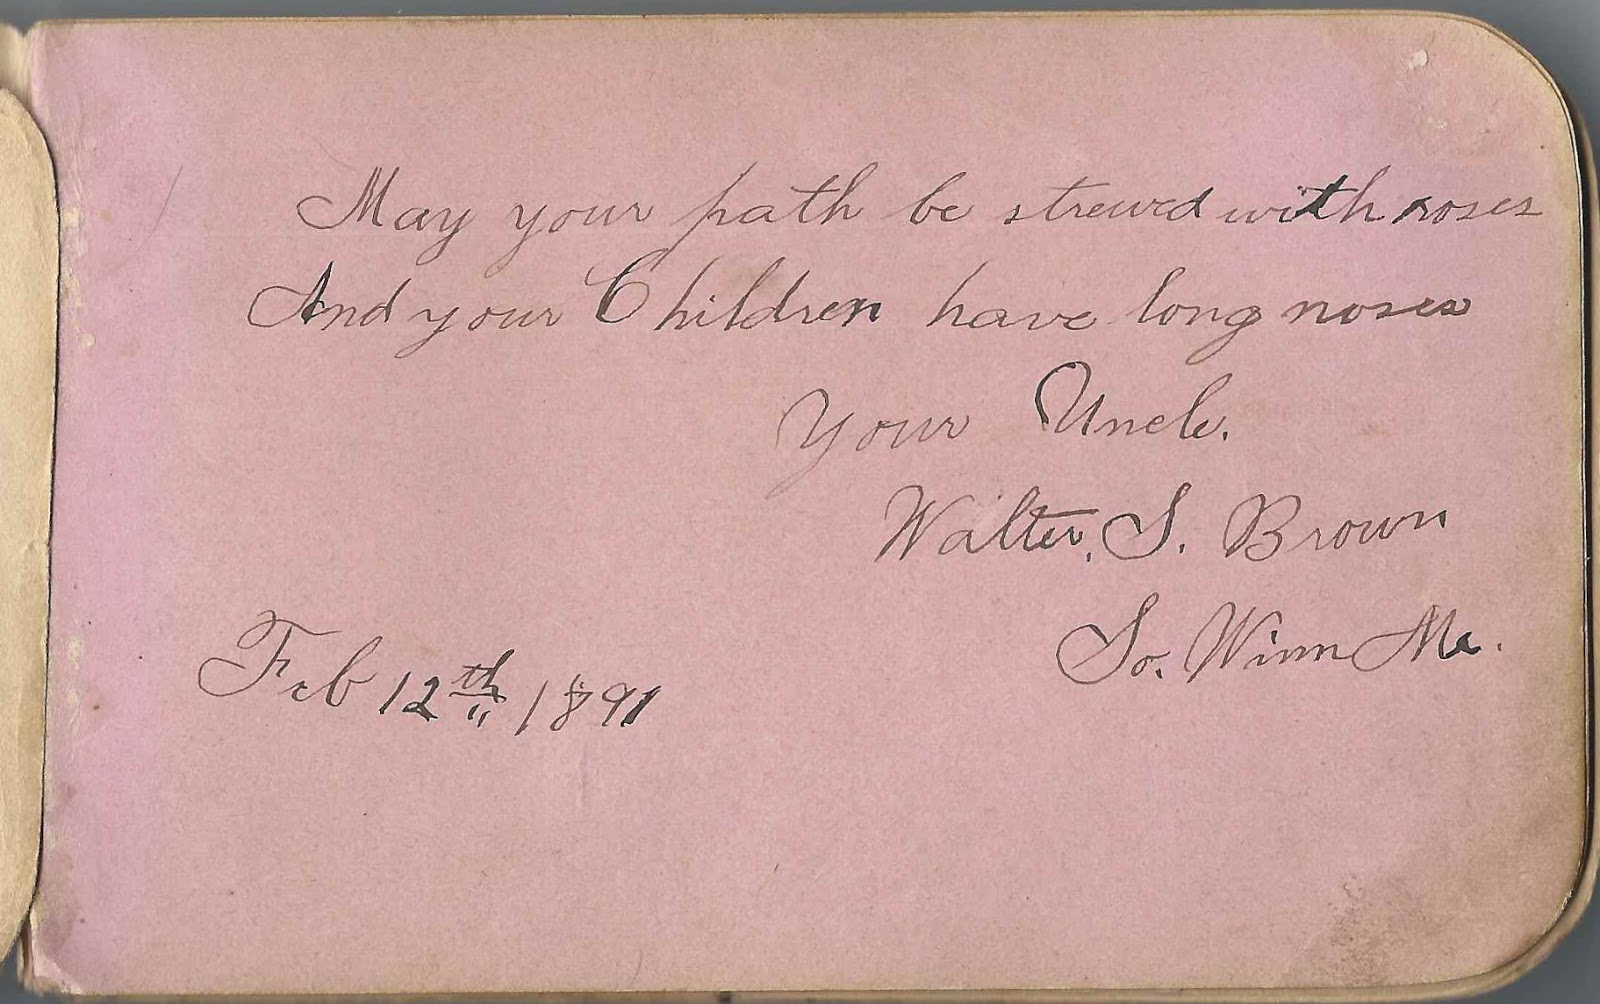 May your path be strewed with roses
And your Children have long noses
Your Uncle.
Walter. S. Brown
So. Winn Me.
Feb 12th 1891